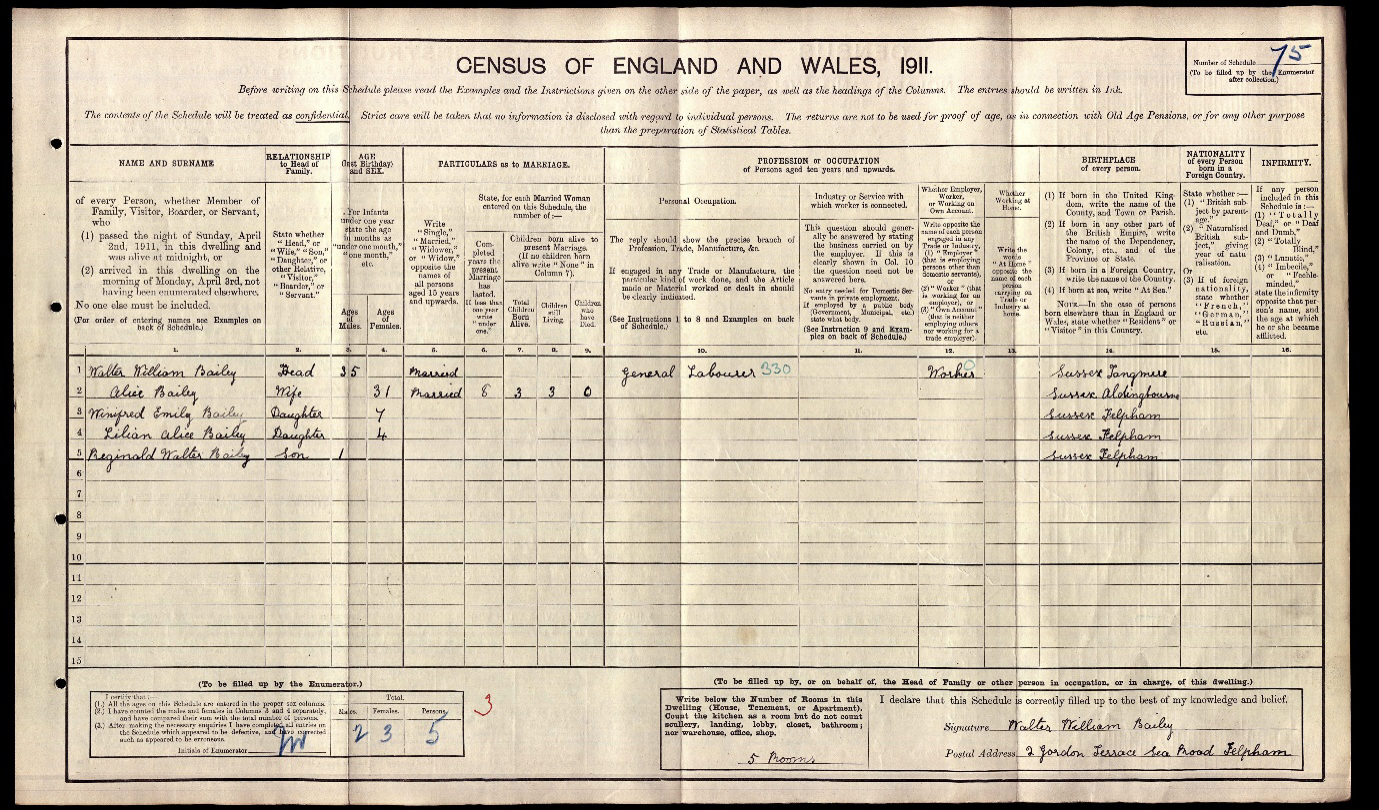 CENSUS OF ENGLAND AND WALES, 1911.
Number of Schedule 75
(To be filled up by the Enumerator
after collection.)
Before writing on this Schedule please read the Examples and the Instructions given on the other side of the paper, as well as the headings of the Columns. The entries should be written in Ink.
The contents of the Schedule will be treated as confidential. Strict care will be taken that no information is disclosed with regard to individual persons. The returns are not to be used for proof of age, as in connection with Old Age Pensions, or for any other purpose
than the preparation of Statistical Tables.
NAME AND SURNAME
of every Person, whether Member of
Family, Visitor, Boarder, or Servant,
who
(1) passed the night of Sunday, April
2nd, 1911, in this dwelling and
was alive at midnight, or
(2) arrived in this dwelling on the
morning of Monday, April 3rd, not
having been enumerated elsewhere.
No one else must be included.
(For order of entering names see Examples on
back of Schedule.)
RELATIONSHIP
to Head of
Family.
State whether
"Head," or
"Wife," "Son,"
"Daughter," or
other Relative,
"Visitor,"
"Boarder," or
"Servant."
AGE
(last Birthday)
and SEX.
For Infants
under one year
state the age
in months as
"under one month,"
"one month,"
etc.
Ages
of
Males.
Ages
of
Females.
PARTICULARS as to MARRIAGE.
Write
"Single,"
"Married,"
"Widower,"
or "Widow,"
opposite the
names of
all persons
aged 15 years
and upwards.
State, for each Married Woman
entered on this Schedule, the
number of:—
Completed
years the
present
Marriage
has
lasted.
If less than
one year
write
"under
one."
Children born alive to
present Marriage.
(If no children born
alive write "None" in
Column 7).
Total
Children
Born
Alive.
Children
still
Living.
Children
who
have
Died.
PROFESSION or OCCUPATION
of Persons aged ten years and upwards.
Personal Occupation.
The reply should show the precise branch of
Profession, Trade, Manufacture, &c.
If engaged in any Trade or Manufacture, the
particular kind of work done, and the Article
made or Material worked or dealt in should
be clearly indicated.
(See Instructions 1 to 8 and Examples on back
of Schedule.)
Industry or Service with
which worker is connected.
This question should generally
be answered by stating
the business carried on by
the employer. If this is
clearly shown in Col. 10
the question need not be
answered here.
No entry needed for Domestic Servants
in private employment.
If employed by a public body
(Government, Municipal, etc.)
state what body.
(See Instruction 9 and Examples
on back of Schedule.)
Whether Employer,
Worker,
or Working on
Own Account.
Write opposite the
name of each person
engaged in any
Trade or Industry,
(1) "Employer"
(that is employing
persons other than
domestic servants),
or
(2) "Worker" (that
is working for an
employer), or
(3) "Own Account"
(that is neither
employing others
nor working for a
trade employer).
Whether
Working at
Home.
Write the
words
"At Home"
opposite the
name of each
person
carrying on
Trade or
Industry at
home.
BIRTHPLACE
of every person.
(1) If born in the United Kingdom,
write the name of the
County, and Town or Parish.
(2) If born in any other part of
the British Empire, write
the name of the Dependency,
Colony, etc., and of the
Province or State.
(3) If born in a Foreign Country,
write the name of the Country.
(4) If born at sea, write "At Sea."
NOTE.—In the case of persons
born elsewhere than in England or
Wales, state whether "Resident" or
"Visitor" in this Country.
NATIONALITY
of every Person
born in a
Foreign Country.
State whether:—
(1) "British subject
by parentage."
(2) "Naturalised
British subject,"
giving
year of naturalisation.
Or
(3) If of foreign
nationality,
state whether
"French,"
"German,"
"Russian,"
etc.
INFIRMITY.
If any person
included in this
Schedule is:—
(1) "Totally
Deaf," or "Deaf
and Dumb,"
(2) "Totally
Blind,"
(3) "Lunatic,"
(4) "Imbecile,"
or "Feeble-
minded,"
state the infirmity
opposite that person's
name, and
the age at which
he or she became
afflicted.
1. 2. 3. 4. 5. 6. 7. 8. 9. 10. 11. 12. 13. 14. 15. 16.
1 Walter William Bailey Head 35 Married General Labourer 330 Worker Sussex Tangmere
2 Alice Bailey Wife 31 Married 8 3 3 0 Sussex Aldingbourne
3 Winifred Emily Bailey Daughter 7 Sussex Felpham
4 Lilian Alice Bailey Daughter 4 Sussex Felpham
5 Reginald Walter Bailey Son 1 Sussex Felpham
6
7
8
9
10
11
12
13
14
15
(To be filled up by the Enumerator.)
I certify that:—
(1.) All the ages on this Schedule are entered in the proper sex columns.
(2.) I have counted the males and females in Columns 3 and 4 separately,
and have compared their sum with the total number of persons.
(3.) After making the necessary enquiries I have completed all entries on
the Schedule which appeared to be defective, and have corrected
such as appeared to be erroneous.
Initials of Enumerator
Total.
Males. Females. Persons.
2 3 5
3
(To be filled up by, or on behalf of, the Head of Family or other person in occupation, or in charge, of this dwelling.)
Write below the Number of Rooms in this
Dwelling (House, Tenement, or Apartment).
Count the kitchen as a room but do not count
scullery, landing, lobby, closet, bathroom;
nor warehouse, office, shop.
5 Rooms
I declare that this Schedule is correctly filled up to the best of my knowledge and belief.
Signature Walter William Bailey
Postal Address 2 Gordon Terrace Sea Road Felpham